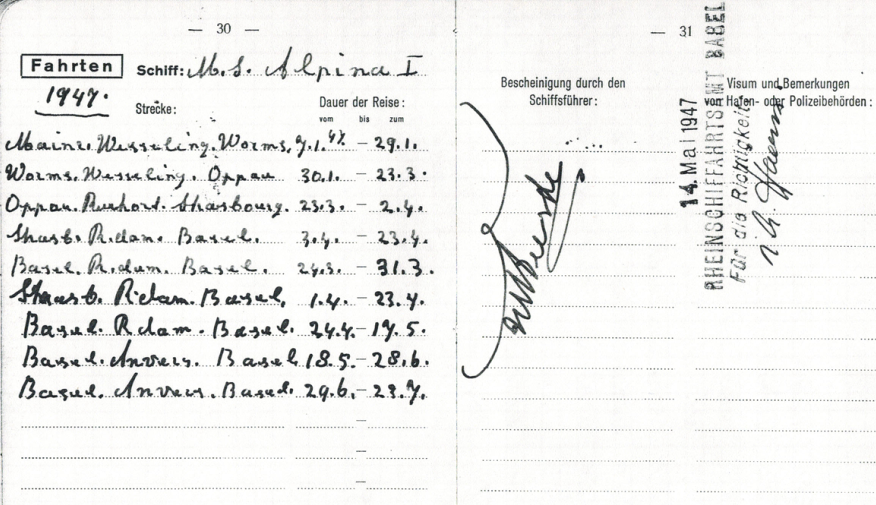 — 30 —
Fahrten Schiff: M.S. Alpina I
1947. Strecke: Dauer der Reise:
vom bis zum
Mainz. Wesseling. Worms. 7.1.47 – 29.1.
Worms. Wesseling. Oppau 30.1. – 23.3.
Oppau. Ruhort. Strasbourg. 23.3. – 2.4.
Strasb. R.dam. Basel. 3.4. – 23.4.
Basel. R.dam. Basel. 24.3. – 31.3.
Strasb. R.dam. Basel. 1.4. – 23.4.
Basel. R.dam. Basel. 24.4. – 17.5.
Basel. Anvers. Basel 18.5. – 28.6.
Basel. Anvers. Basel. 29.6. – 23.7.
— 31
Bescheinigung durch den
Schiffsführer:
Visum und Bemerkungen
von Hafen- oder Polizeibehörden:
14. Mai 1947
RHEINSCHIFFAHRTSAMT BASEL
Für die Richtigkeit